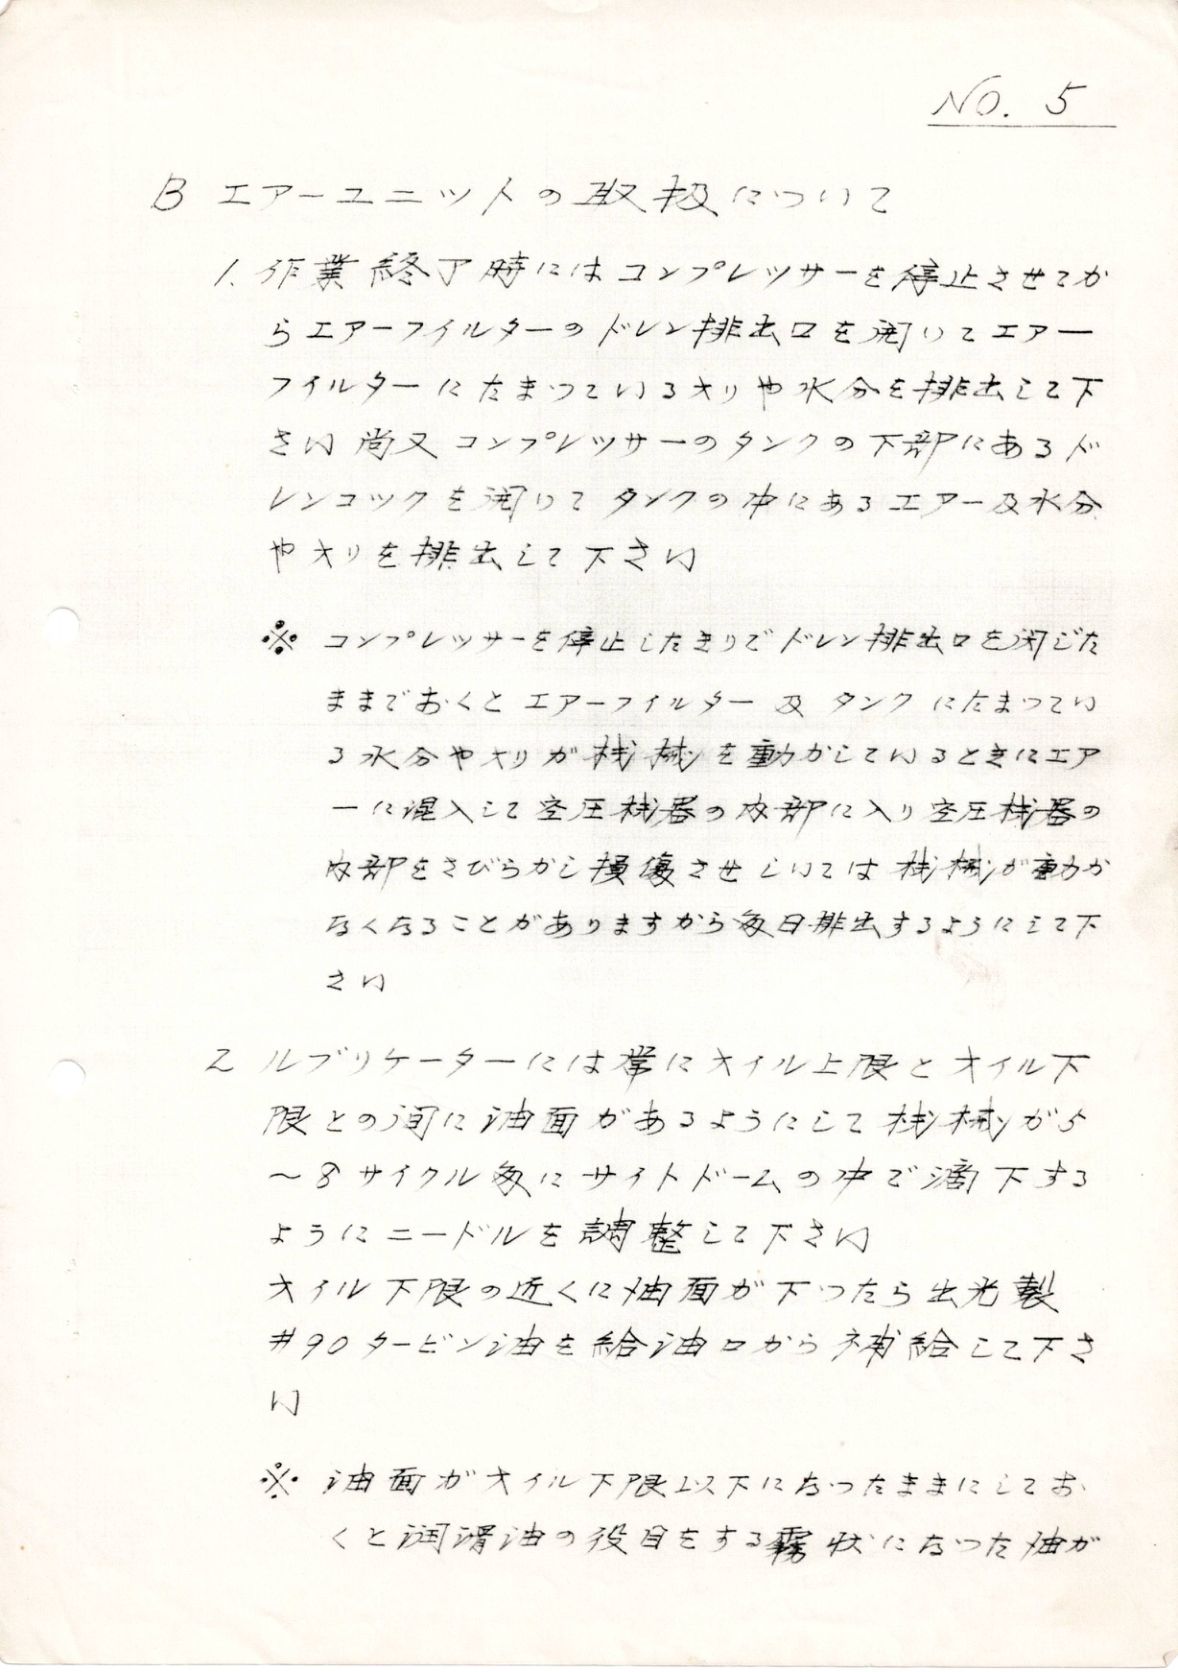 NO. 5
B エアーユニットの取扱について
1. 作業終了時にはコンプレッサーを停止させてか
らエアーフィルターのドレン排出口を開いてエアー
フィルターにたまつているオリや水分を排出して下
さい 尚又コンプレッサーのタンクの下部にあるド
レンコックを開いてタンクの中にあるエアー及水分
やオリを排出して下さい
※ コンプレッサーを停止したきりでドレン排出口を閉じた
ままでおくとエアーフィルター及タンクにたまつてい
る水分やオリが機械を動かしているときにエア
ーに混入して空圧機器の内部に入り空圧機器の
内部をさびらかし損傷させしいては機械が動か
なくなることがありますから毎日排出するようにして下
さい
2 ルブリケーターには常にオイル上限とオイル下
限との間に油面があるようにして機械が5
～8サイクル毎にサイトドームの中で滴下する
ようにニードルを調整して下さい
オイル下限の近くに油面が下つたら出光製
#90タービン油を給油口から補給して下さ
い
※ 油面がオイル下限以下になつたままにしてお
くと潤滑油の役目をする霧状になつた油が